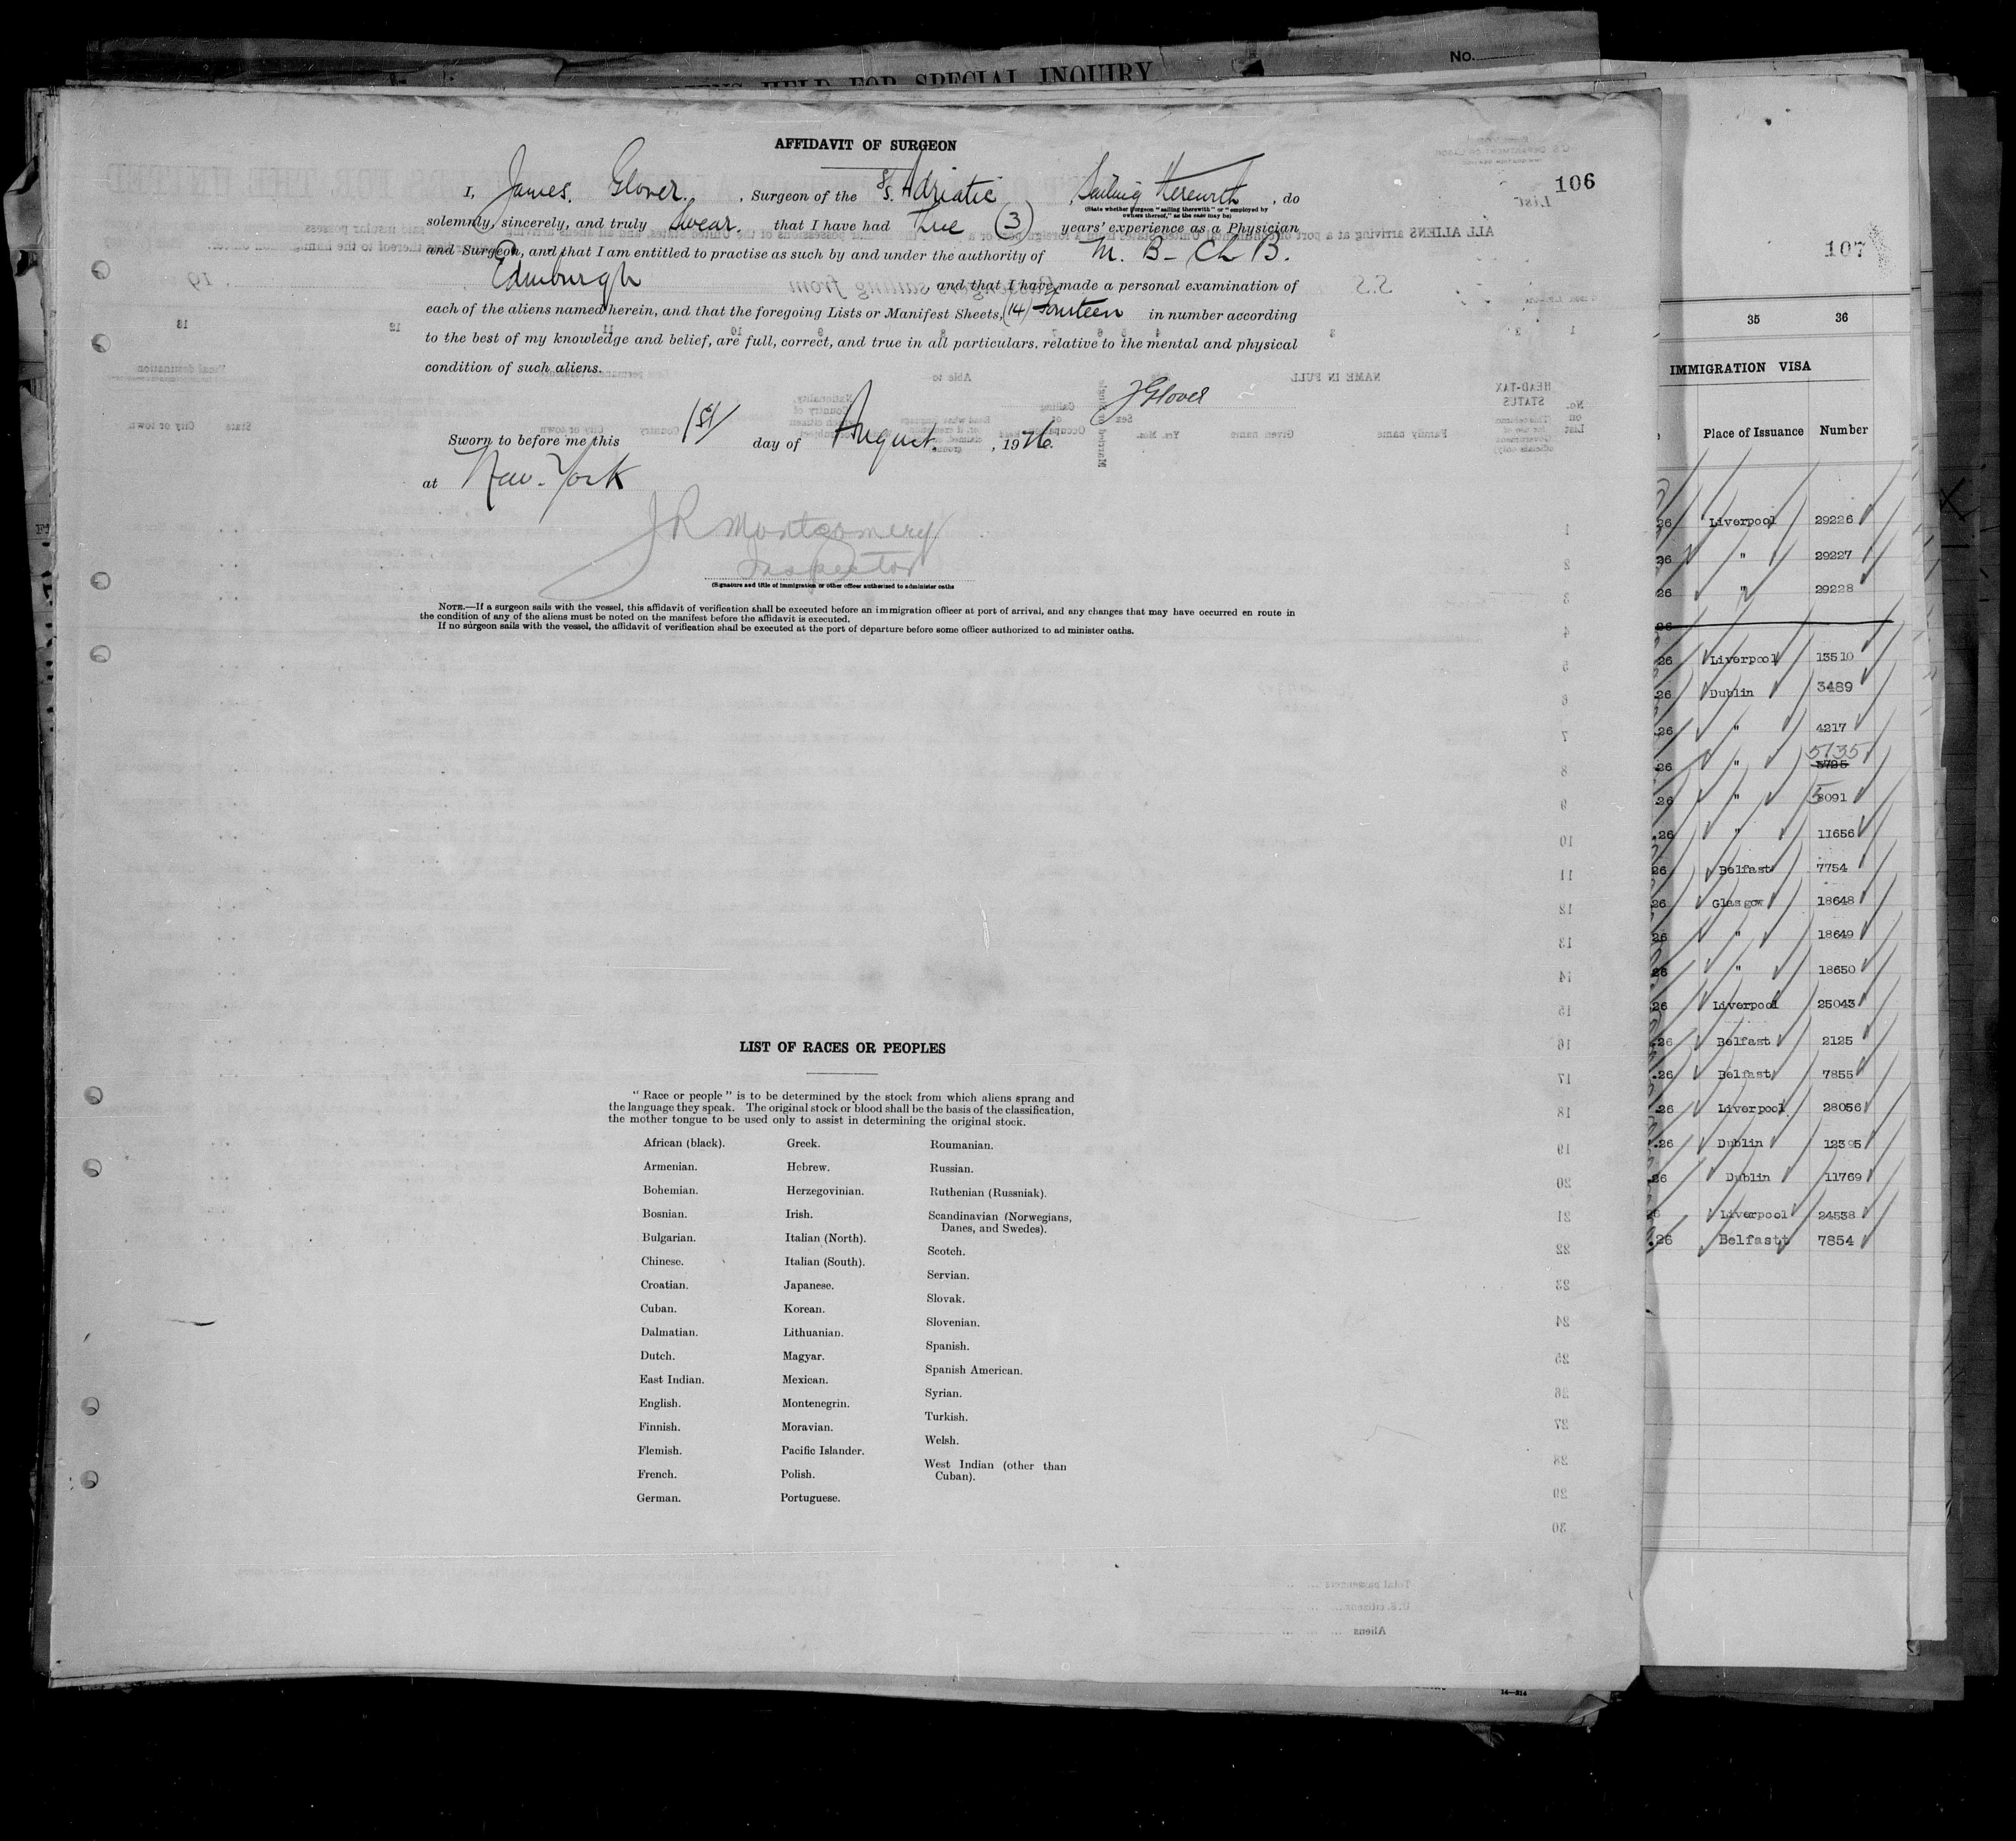 No.
ALIENS HELD FOR SPECIAL INQUIRY
106
AFFIDAVIT OF SURGEON
I, James. Glover. , Surgeon of the S/s. Adriatic , Sailing therewith , do
(State whether surgeon "sailing therewith" or "employed by
owners thereof," as the case may be)
solemnly, sincerely, and truly swear. that I have had (3) years' experience as a Physician
and Surgeon, and that I am entitled to practise as such by and under the authority of M. B - Ch B.
Edinburgh , and that I have made a personal examination of
each of the aliens named herein, and that the foregoing Lists or Manifest Sheets, (14) fourteen in number according
to the best of my knowledge and belief, are full, correct, and true in all particulars. relative to the mental and physical
condition of such aliens.
J Glover
Sworn to before me this 1st day of August. , 1926.
at New-York
J R Montgomery
Inspector
(Signature and title of immigration or other officer authorized to administer oaths
NOTE.—If a surgeon sails with the vessel, this affidavit of verification shall be executed before an immigration officer at port of arrival, and any changes that may have occurred en route in
the condition of any of the aliens must be noted on the manifest before the affidavit is executed.
If no surgeon sails with the vessel, the affidavit of verification shall be executed at the port of departure before some officer authorized to ad minister oaths.
LIST OF RACES OR PEOPLES
" Race or people " is to be determined by the stock from which aliens sprang and
the language they speak. The original stock or blood shall be the basis of the classification,
the mother tongue to be used only to assist in determining the original stock.
African (black).
Armenian.
Bohemian.
Bosnian.
Bulgarian.
Chinese.
Croatian.
Cuban.
Dalmatian.
Dutch.
East Indian.
English.
Finnish.
Flemish.
French.
German.
Greek.
Hebrew.
Herzegovinian.
Irish.
Italian (North).
Italian (South).
Japanese.
Korean.
Lithuanian.
Magyar.
Mexican.
Montenegrin.
Moravian.
Pacific Islander.
Polish.
Portuguese.
Roumanian.
Russian.
Ruthenian (Russniak).
Scandinavian (Norwegians,
Danes, and Swedes).
Scotch.
Servian.
Slovak.
Slovenian.
Spanish.
Spanish American.
Syrian.
Turkish.
Welsh.
West Indian (other than
Cuban).
14—214
107
35 36
IMMIGRATION VISA
Place of Issuance Number
26 Liverpool 29226
26 " 29227
26 " 29228
26
26 Liverpool 13510
26 Dublin 3489
.26 " 4217
5735
26 " 5725
.26 " 5091
.26 " 11656
26 Belfast 7754
26 Glasgow 18648
26 " 18649
26 " 18650
26 Liverpool 25043
.26 Belfast 2125
.26 Belfast 7855
.26 Liverpool 28056
.26 Dublin 12395
26 Dublin 11769
6 Liverpool 24538
.26 Belfast 7854